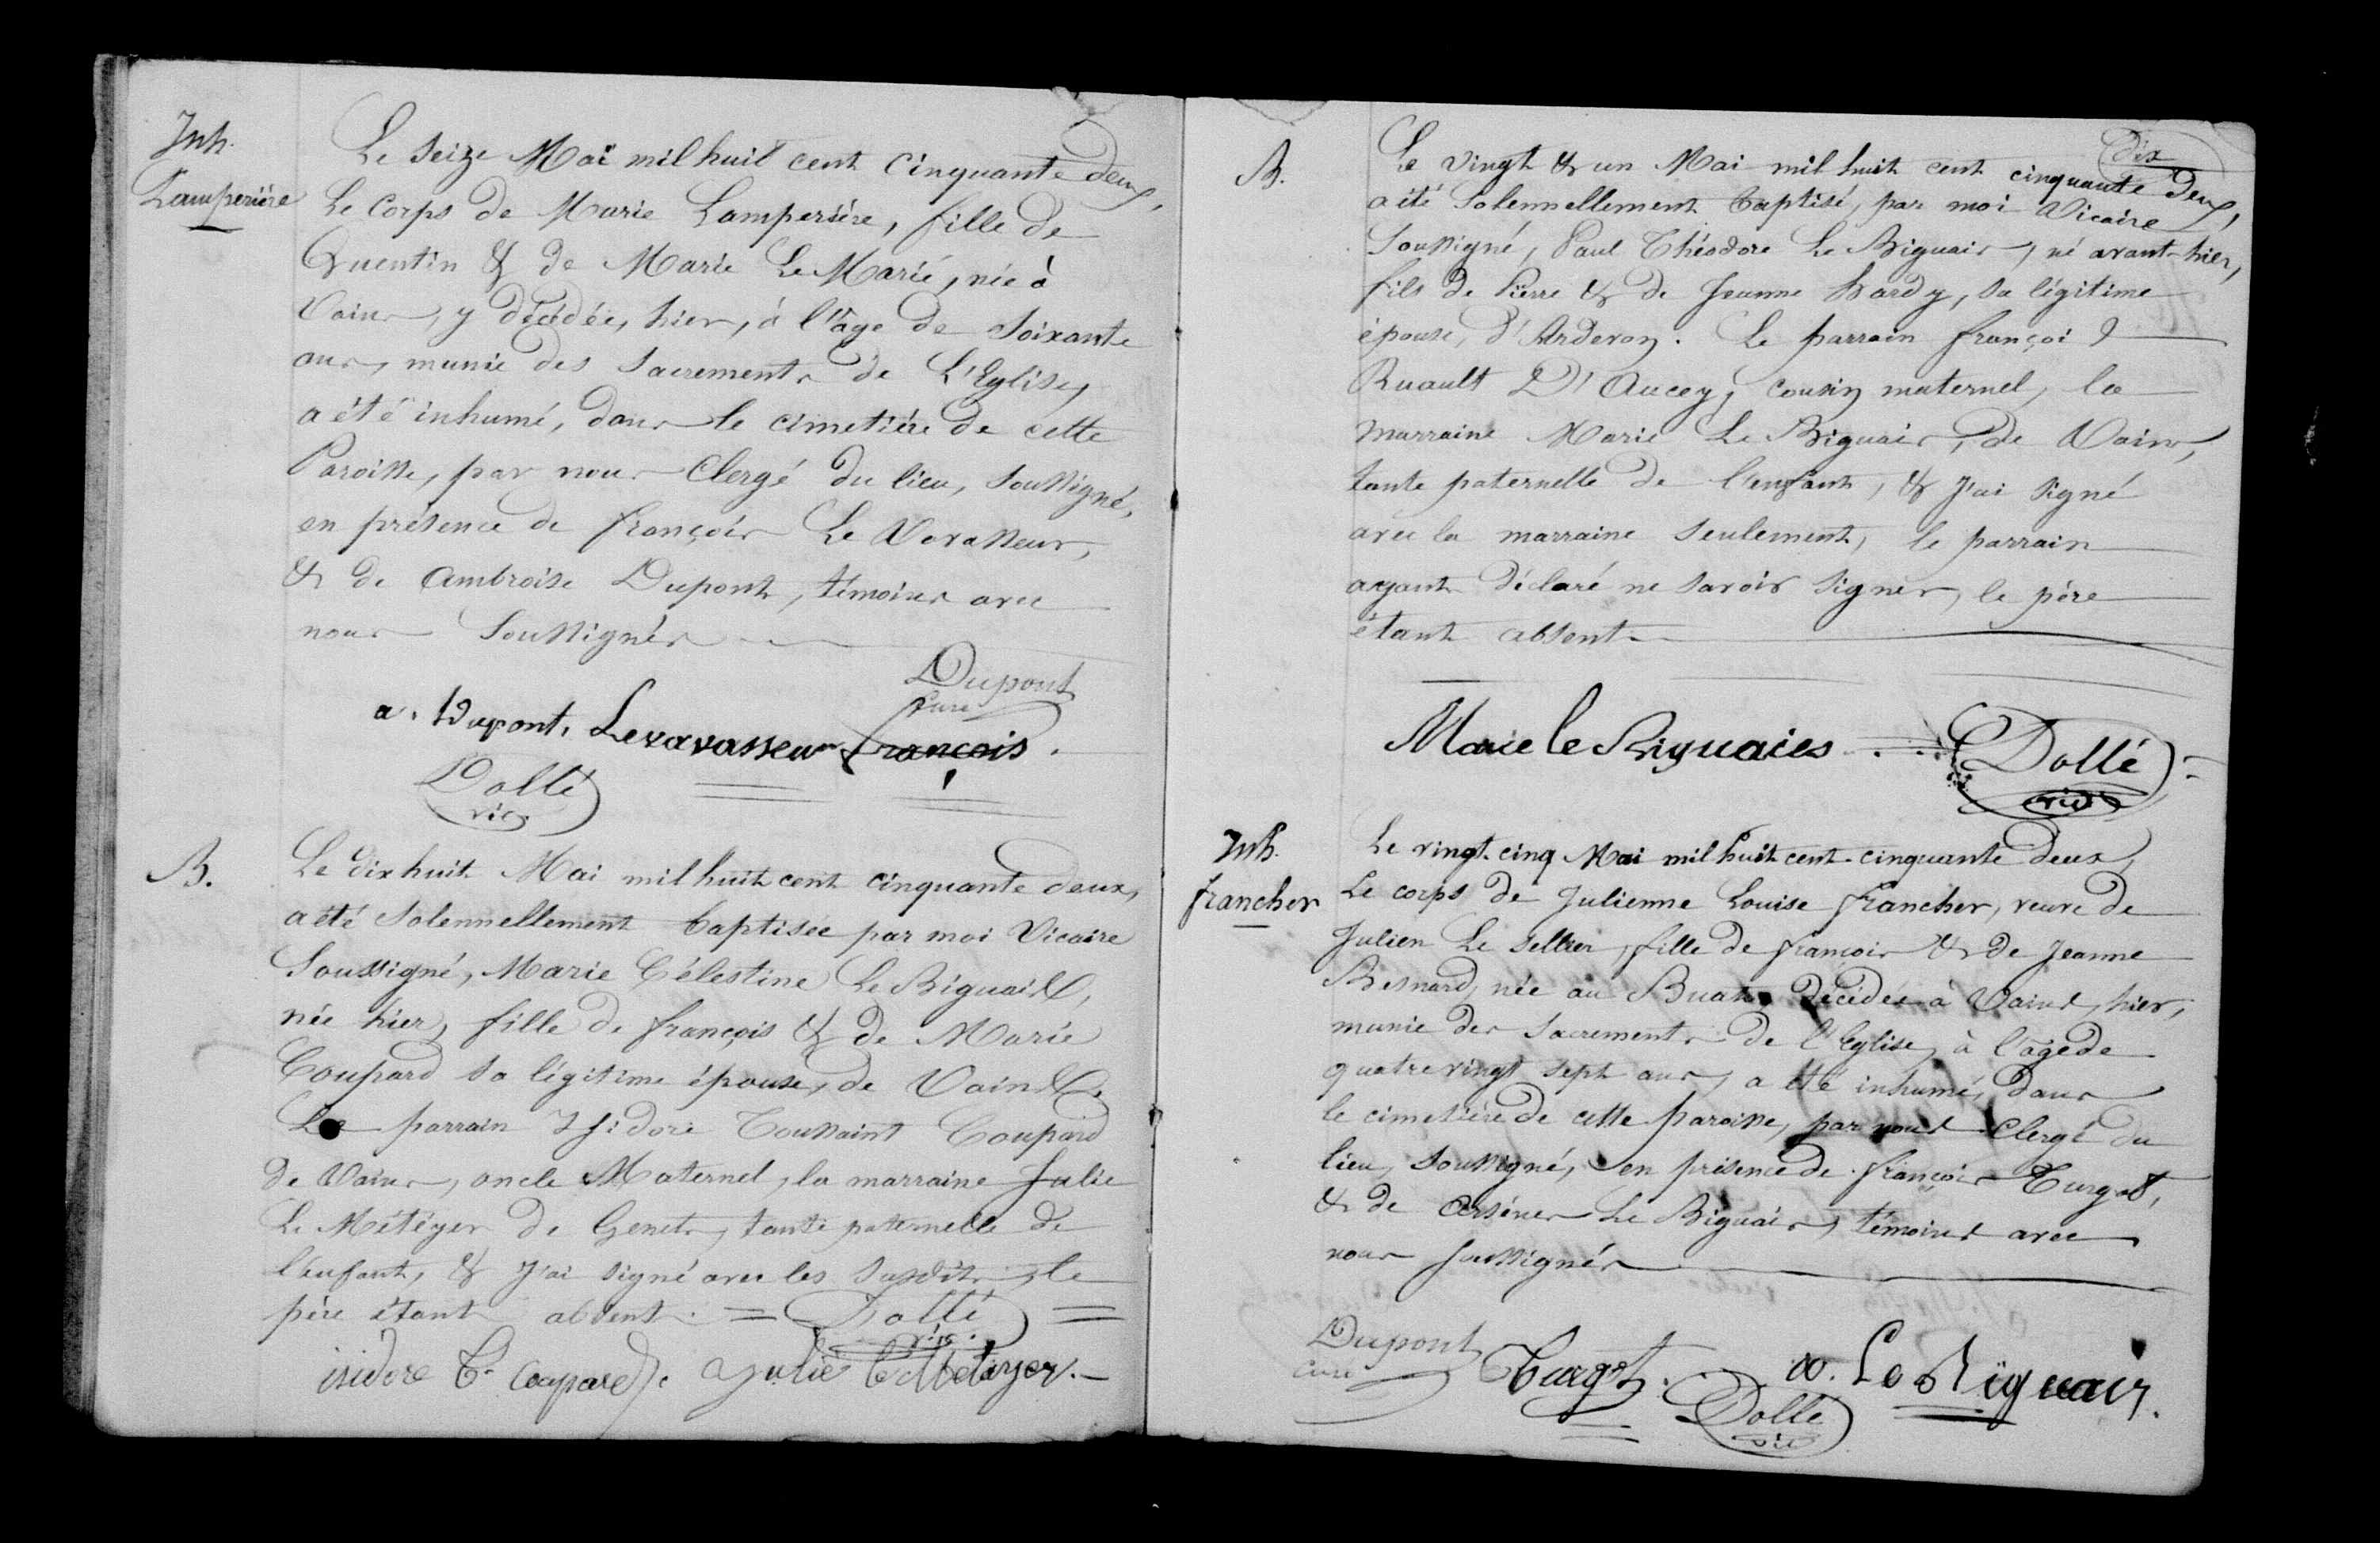 Inh.
Lamperière
Le seize Mai mil huit cent cinquante deux,
Le corps de Marie Lamperière, fille de
Quentin & de Marie Le Marié, née à
Vains, y décédée, hier, à l'âge de soixante
ans, munie des sacrements de L'Eglise,
a été inhumé, dans le cimetière de cette
Paroisse, par nous Clergé du lieu, soussigné,
en présence de françois Le Vavasseur,
& de Ambroise Dupont, témoins avec
nous Soussignés
Dupont
Curé
a. Dupont. Levavasseur françois.
Dollé
vic
B.
Le dix huit Mai mil huit cent cinquante deux,
a été Solennellement baptisée par moi Vicaire
Soussigné, Marie Célestine Le Biguais,
née hier, fille de françois & de Marie
Coupard sa légitime épouse, de Vains.
Le parrain Isidore Toussaint Coupard
de Vains, oncle Maternel, la marraine Julie
Le Météyer de Genets, tante paternelle de
l'enfant, & J'ai signé avec les susdits, le
père étant absent. = Dollé =
vic.
isidore T. Coupard. Julie le Metayer.
dix
B.
Le vingt & un Mai mil huit cent cinquante deux,
a été Solennellement baptisé, par moi Vicaire
Soussigné, Paul Théodore Le Biguais, né avant-hier,
fils de Pierre & de Jeanne hardy, sa légitime
épouse, d'Ardevon. Le parrain françois
Ruault D'Aucey, cousin maternel, la
marraine Marie Le Biguais, de Vains,
tante paternelle de l'enfant, & J'ai signé
avec la marraine seulement, le parrain
ayant déclaré ne savoir signer, le père
étant absent
Marie le Biguaies Dollé
vic
Inh.
francher
Le vingt-cinq Mai mil huit cent-cinquante deux,
Le corps de Julienne Louise francher, veuve de
Julien Le Sellier, fille de françois & de Jeanne
Besnard, née au Buat, décédée à Vains, hier,
munie des sacrements de l'Eglise, à l'âge de
quatre vingt sept ans, a été inhumé, dans
le cimetière de cette paroisse, par nous Clergé du
lieu, soussigné, en présence de françois Turgot,
& de Arsène Le Biguais, témoins avec
nous soussignés
Dupont
curé
Turgot. a. Le Biguais.
Dollé
vic